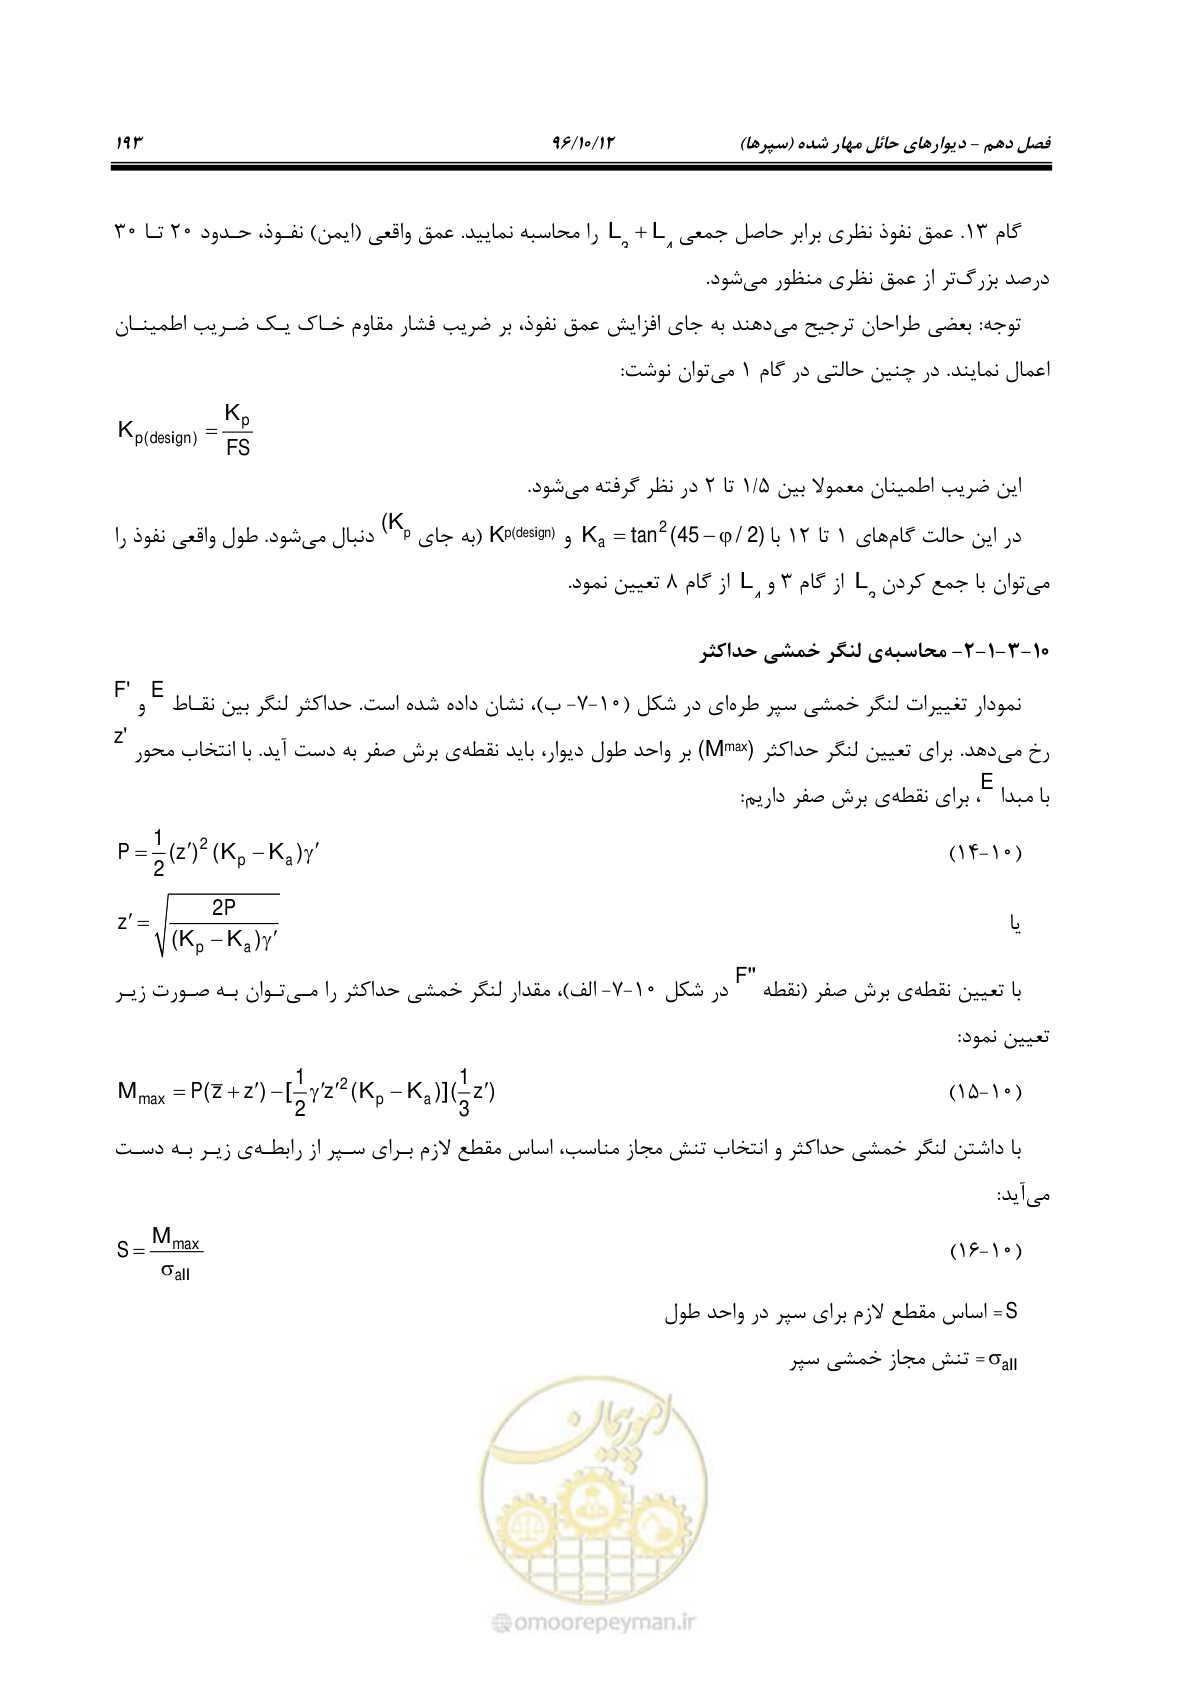 فصل دهم - دیوارهای حائل مهار شده (سپرها) ۹۶/۱۰/۱۲ ۱۹۳
گام ۱۳. عمق نفوذ نظری برابر حاصل جمعی L₃ + L₄ را محاسبه نمایید. عمق واقعی (ایمن) نفوذ، حدود ۲۰ تا ۳۰
درصد بزرگ‌تر از عمق نظری منظور می‌شود.
توجه: بعضی طراحان ترجیح می‌دهند به جای افزایش عمق نفوذ، بر ضریب فشار مقاوم خاک یک ضریب اطمینان
اعمال نمایند. در چنین حالتی در گام ۱ می‌توان نوشت:
K_p(design) = K_p / FS
این ضریب اطمینان معمولا بین ۱/۵ تا ۲ در نظر گرفته می‌شود.
در این حالت گام‌های ۱ تا ۱۲ با K_a = tan²(45 − φ / 2) و K_p(design) (به جای K_p) دنبال می‌شود. طول واقعی نفوذ را
می‌توان با جمع کردن L₃ از گام ۳ و L₄ از گام ۸ تعیین نمود.
۱۰-۳-۱-۲- محاسبه‌ی لنگر خمشی حداکثر
نمودار تغییرات لنگر خمشی سپر طره‌ای در شکل (۱۰-۷- ب)، نشان داده شده است. حداکثر لنگر بین نقاط E و F'
رخ می‌دهد. برای تعیین لنگر حداکثر (M_max) بر واحد طول دیوار، باید نقطه‌ی برش صفر به دست آید. با انتخاب محور z'
با مبدا E، برای نقطه‌ی برش صفر داریم:
(۱۰-۱۴) P = 1/2 (z′)² (K_p − K_a)γ′
یا z′ = √(2P / (K_p − K_a)γ′)
با تعیین نقطه‌ی برش صفر (نقطه F'' در شکل ۱۰-۷- الف)، مقدار لنگر خمشی حداکثر را می‌توان به صورت زیر
تعیین نمود:
(۱۰-۱۵) M_max = P(z̄ + z′) − [1/2 γ′z′² (K_p − K_a)](1/3 z′)
با داشتن لنگر خمشی حداکثر و انتخاب تنش مجاز مناسب، اساس مقطع لازم برای سپر از رابطه‌ی زیر به دست
می‌آید:
(۱۰-۱۶) S = M_max / σ_all
S = اساس مقطع لازم برای سپر در واحد طول
σ_all = تنش مجاز خمشی سپر
امور پیمان
@omoorepeyman.ir